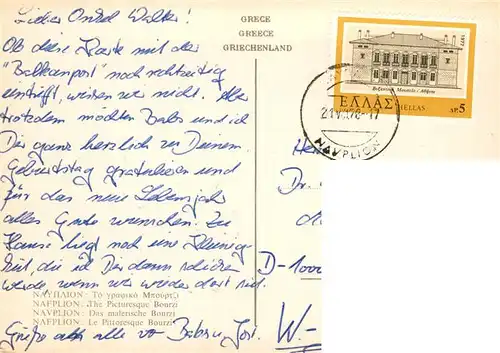 Lieber Onkel Walter!
Ob diese Karte mit der
"Balkanpost" noch rechtzeitig
eintrifft, wissen wir nicht. Aber
trotzdem möchten Babs und ich
Dir ganz herzlich zu Deinem
Geburtstag gratulieren und
für das neue Lebensjahr
alles Gute wünschen. Zu
Hause liegt noch eine Kleinig-
keit, die ich Dir dann schicken
werde, wenn wir wieder dort sind.
Grüße an alle von Babs u. Jost.
ΝΑΥΠΛΙΟΝ: Το γραφικό Μπούρτζι
NAVPLION: The Picturesque Bourzi
NAVPLION: Das malerische Bourzi
NAFPLION: Le Pittoresque Bourzi
GRECE
GREECE
GRIECHENLAND
1977
Βυζαντινό Μουσείο / Αθήνα
ΕΛΛΑΣ HELLAS ΔΡ. 5
NAVPLION
Dr.
D-1000
W.-